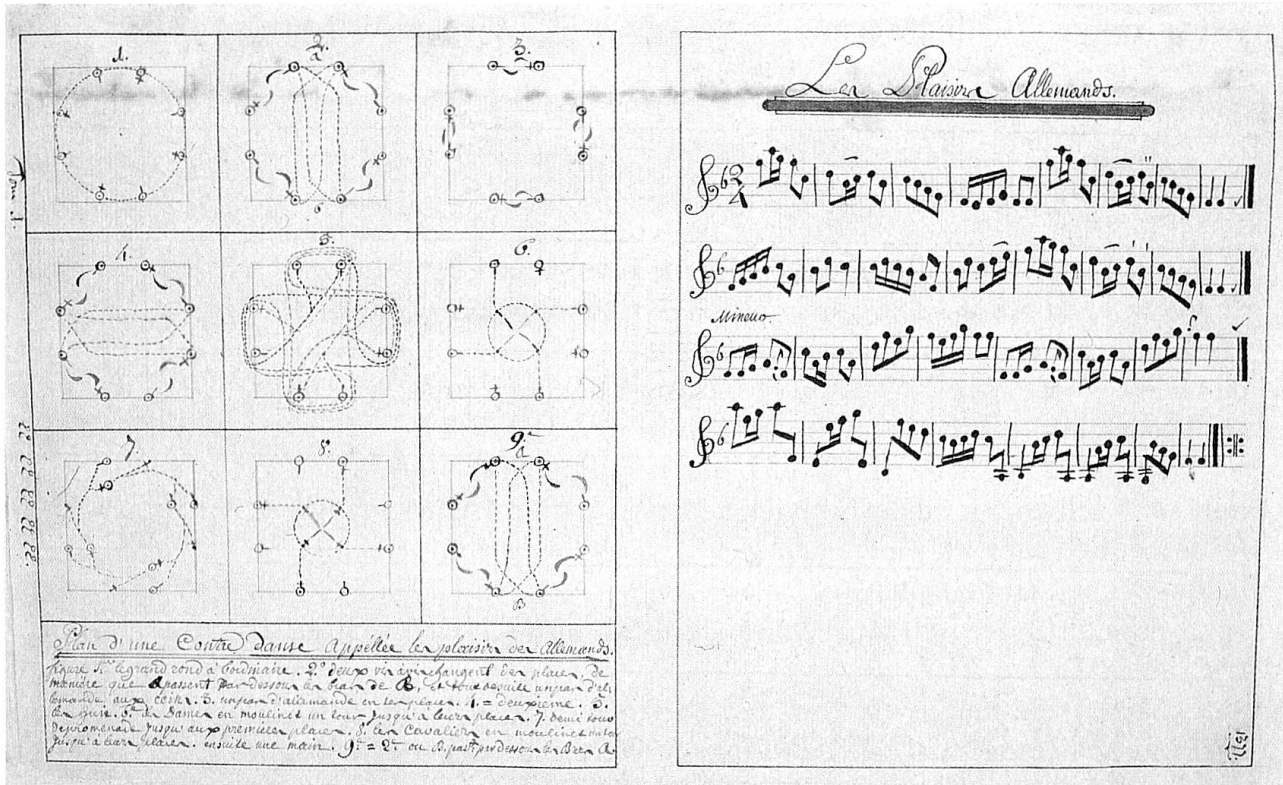 1.
2.
a
3.
4.
5.
6.
7.
8.
9.e
a
B
Plan d'une Contre danse Appellée les plaisirs des Allemands.
figure 1.re le grand rond à l'ordinaire. 2.e deux vis à vis changent des places, de
manière que a passent par dessous les bras de B, et tout de suite un pas d'al
lemande aux coins. 3. un pas d'allemande en les places. 4. = deuxieme. 5.
6.e les Dames en moulinet un tour jusqu'à leurs places. 7. demi tour
de promenade jusqu'aux premieres places. 8. les Cavaliers en moulinet
jusqu'à leurs places. ensuite une main. 9.e = 2.e ou B. par dessous les Bras A.
Les Plaisirs Allemands.
2
4
Mineur